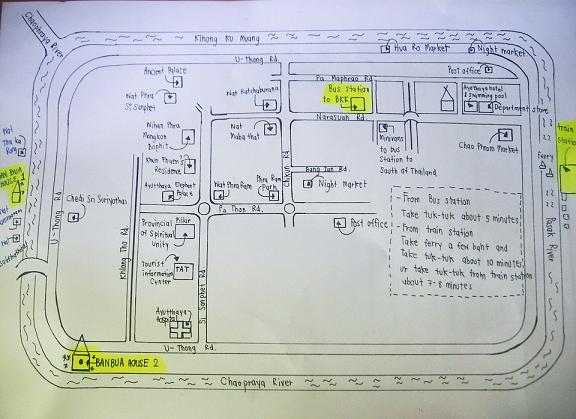 Chaopraya River
Khlong Ku Muang
Hua Ro Market
Night market
U-Thong Rd.
Post office
Ancient Palace
Pa Maphrao Rd.
Bus station
to BKK
Ayutthaya hotel
& swimming pool
Department store
Wat Phra
Si Sanphet
Wat Ratchaburana
Naresuan Rd.
train
station
Wihan Phra
Mongkon
Bophit
Wat
Mahathat
Minivans
to bus
station to
South of Thailand
Chao Phrom Market
ferry
Khun Phaen's
Residence
Chikun Rd.
Bang Ian Rd.
Night market
BAN BUA
HOUSE 1
Ayutthaya Elephant
Palace
Wat Phra Ram
Phra Ram
Park
U-Thong Rd
Chedi Sri Suriyothai
Pa Thon Rd.
Post office
Provincial
of Spiritual
Unity
Pillar
Khlong Tho Rd.
Si Sanphet Rd.
Tourist
information
Center
TAT
Ayutthaya
Hospital
- From Bus station
Take tuk-tuk about 5 minutes
- From train station
Take ferry a few baht and
Take tuk-tuk about 10 minutes
or take tuk-tuk from train station
about 7-8 minutes
Pasak River
U-Thong Rd.
BANBUA HOUSE 2
Chaopraya River